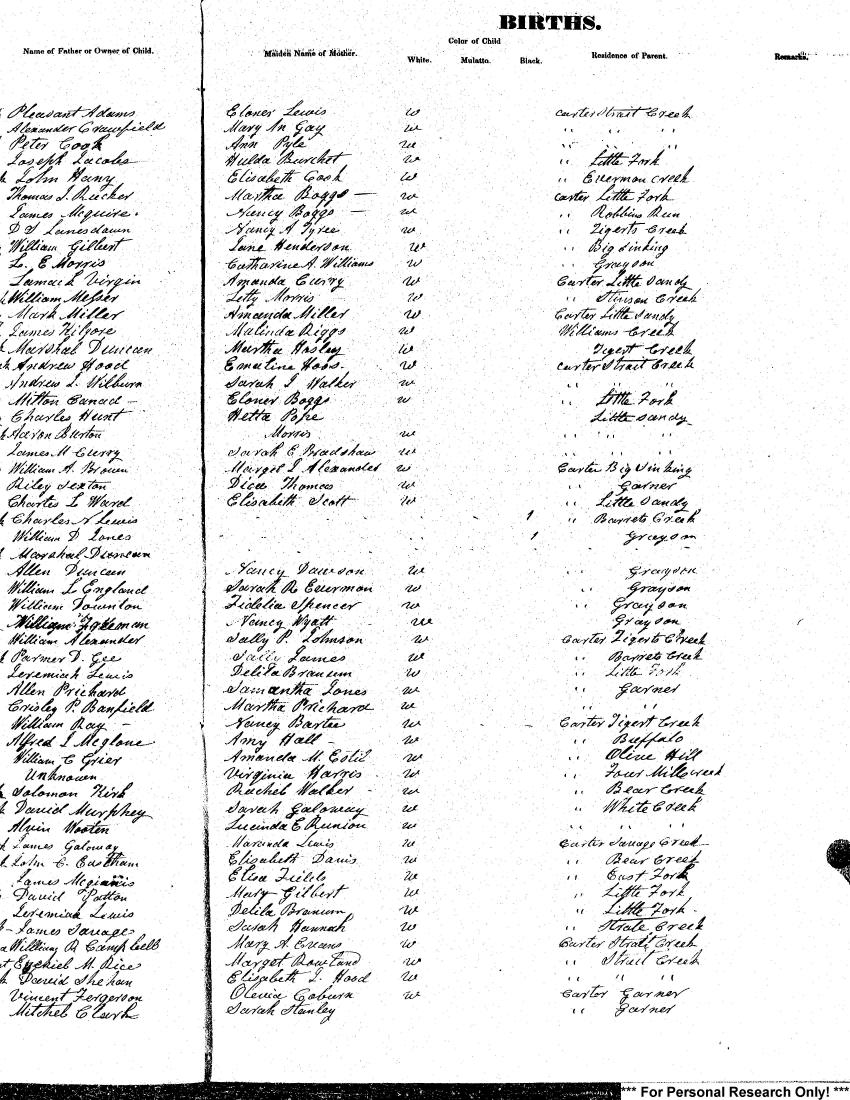 BIRTHS.
Name of Father or Owner of Child. Maiden Name of Mother. Color of Child White. Mulatto. Black. Residence of Parent. Remarks.
Pleasant Adams Eloner Lewis w Carter Strait Creek
Alexander Crawfield Mary An Gay w " " "
Peter Cook Ann Pyle w " " "
Joseph Jacobs Hulda Burchet w " Little Fork
John Hany Elisabeth Cook w " Everman Creek
Thomas J. Rucker Martha Boggs — w Carter Little Fork
James Mcguire. Nancy Boggs — w " Robbins Run
D S Lansdown Nancy A Tyree w " Tigerts Creek
William Gilbert Jane Henderson w " Big Sinking
L. E Morris Catharine A. Williams w " Grayson
Lamach Virgin Amanda Curry w Carter Little Sandy
William Messer Letty Morris w " Stinson Creek
Mark Miller Amanda Miller w Carter Little Sandy
James Kilgore Malinda Riggs w Williams Creek
Marshal Duncan Martha Hasley w Tigert Creek
Andrew Hood Emaline Hoos. w Carter Strait Creek
Andrew L. Wilburn Sarah J Walker w " " "
Milton Canad — Eloner Boggs w " Little Fork
Charles Hunt Hetta Pope Little Sandy
Aaron Burton Morris w " " "
James M Curry Sarah E Bradshaw " " "
William A. Brown Margret J Alexander w Carter Big Sinking
Riley Sexton Dica Thomas w " Garner
Charles L Ward Elisabeth Scott w " Little Sandy
Charles N Lewis 1 " Barrets Creek
William D Jones 1 Grayson
Marshal Duncan
Allen Duncan Nancy Dawson w " Grayson
William L England Sarah R Everman w " Grayson
William Downton Fidelia Spencer w " Grayson
William Foleman Nancy Wyatt w " Grayson
William Alexander Sally P. Johnson w Carter Tigerts Creek
Parmer D. Gee Sally James w " Barrets Creek
Jeremiah Lewis Delila Branum w " Little Fork
Allen Prichard Samantha Jones w " Garner
Crisley P. Banfield Martha Prichard w " "
William Ray — Nancy Bartee w Carter Tigert Creek
Alfred J Mcglone Amy Hall — w " Buffalo
William C Grier Amanda M. Estil w " Olive Hill
Unknown Virginia Harris w " Four Mill creek
Solomon Kirk Rachel Walker w " Bear Creek
David Murphey Sarah Galoway w " White Creek
Alvin Wooten Lucinda E Runion w " " "
James Galoway Maranda Lewis w Carter Savage Creek
John C. Eastham Elisabeth Davis w " Bear Creek
James Mcginnis Elisa Fields w " East Fork
David Patton Mary Gilbert w " Little Fork
Jeremiah Lewis Delila Branum w " Little Fork
James Savage Sarah Hannah w " Strate Creek
William R Campbell Mary A. Evans w Carter Strait Creek
Ezekiel M. Rice Marget Rowland w " Strait Creek
David Shehan Elisabeth J. Hood w " " "
Vincent Fergerson Olevia Coburn w Carter Garner
Mitchel Clark Sarah Stanley " Garner
*** For Personal Research Only! ***